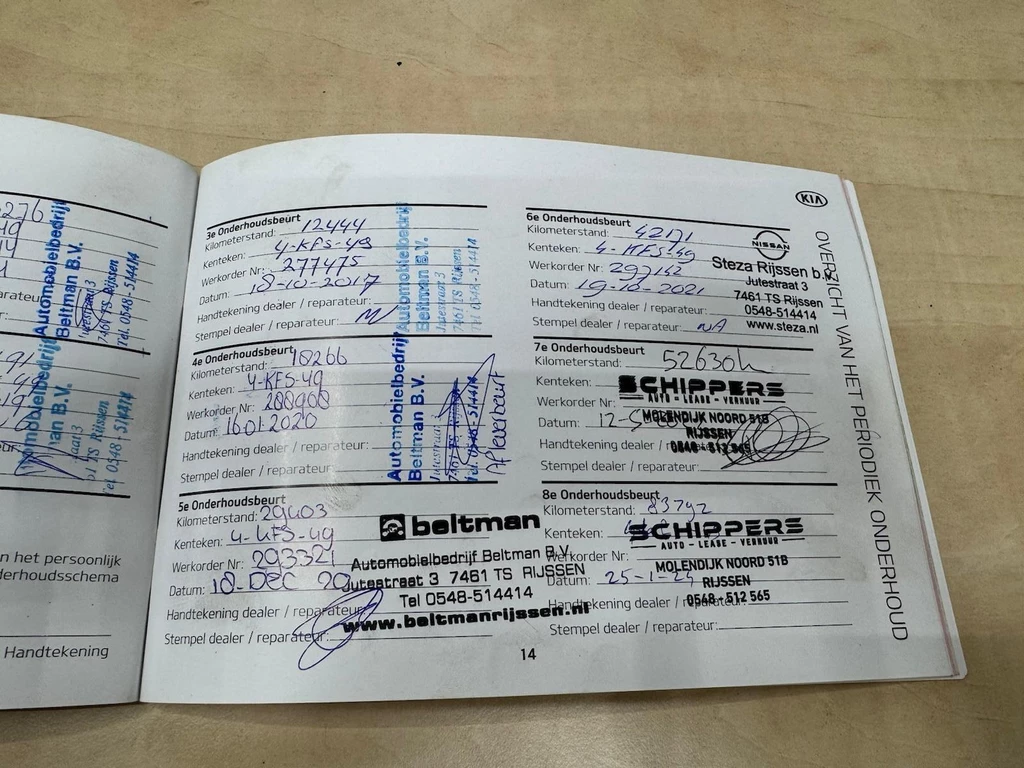 276
Automobielbedrijf
Beltman B.V.
7461 TS Rijssen
Tel. 0548-514414
Handtekening
n het persoonlijk
derhoudsschema
3e Onderhoudsbeurt
Kilometerstand: 12444
Kenteken: 4-KFS-49
Werkorder Nr: 277475
Datum: 18-10-2017
Handtekening dealer / reparateur:
Stempel dealer / reparateur:
Automobielbedrijf
Beltman B.V.
Jutestraat 3
7461 TS Rijssen
Tel 0548-514414
4e Onderhoudsbeurt
Kilometerstand: 18266
Kenteken: 4-KFS-49
Werkorder Nr:
Datum: 16 01 2020
Handtekening dealer / reparateur:
Stempel dealer / reparateur:
Automobielbedrijf
Beltman B.V.
Jutestraat 3
7461 TS Rijssen
Tel. 0548-514414
Afleverbeurt
5e Onderhoudsbeurt
Kilometerstand: 29403
Kenteken: 4-KFS-49
Werkorder Nr: 293321
Datum: 18-DEC 20
Handtekening dealer / reparateur:
Stempel dealer / reparateur:
beltman
Automobielbedrijf Beltman B.V.
Jutestraat 3 7461 TS RIJSSEN
Tel 0548-514414
www.beltmanrijssen.nl
6e Onderhoudsbeurt
Kilometerstand: 42171
Kenteken: 4-KFS-49
Werkorder Nr: 297142
Datum: 19-10-2021
Handtekening dealer / reparateur:
Stempel dealer / reparateur:
NISSAN
Steza Rijssen b.v.
Jutestraat 3
7461 TS Rijssen
0548-514414
www.steza.nl
7e Onderhoudsbeurt
Kilometerstand: 52630
Kenteken:
Werkorder Nr:
Datum: 12-5
Handtekening dealer /
Stempel dealer / reparateur:
SCHIPPERS
AUTO - LEASE - VERHUUR
MOLENDIJK NOORD 51B
RIJSSEN
0548 - 512 565
8e Onderhoudsbeurt
Kilometerstand: 83792
Kenteken:
Werkorder Nr:
Datum: 25-1-24
Handtekening dealer / reparateur:
Stempel dealer / reparateur:
SCHIPPERS
AUTO - LEASE - VERHUUR
MOLENDIJK NOORD 51B
RIJSSEN
0548 - 512 565
KIA
OVERZICHT VAN HET PERIODIEK ONDERHOUD
14